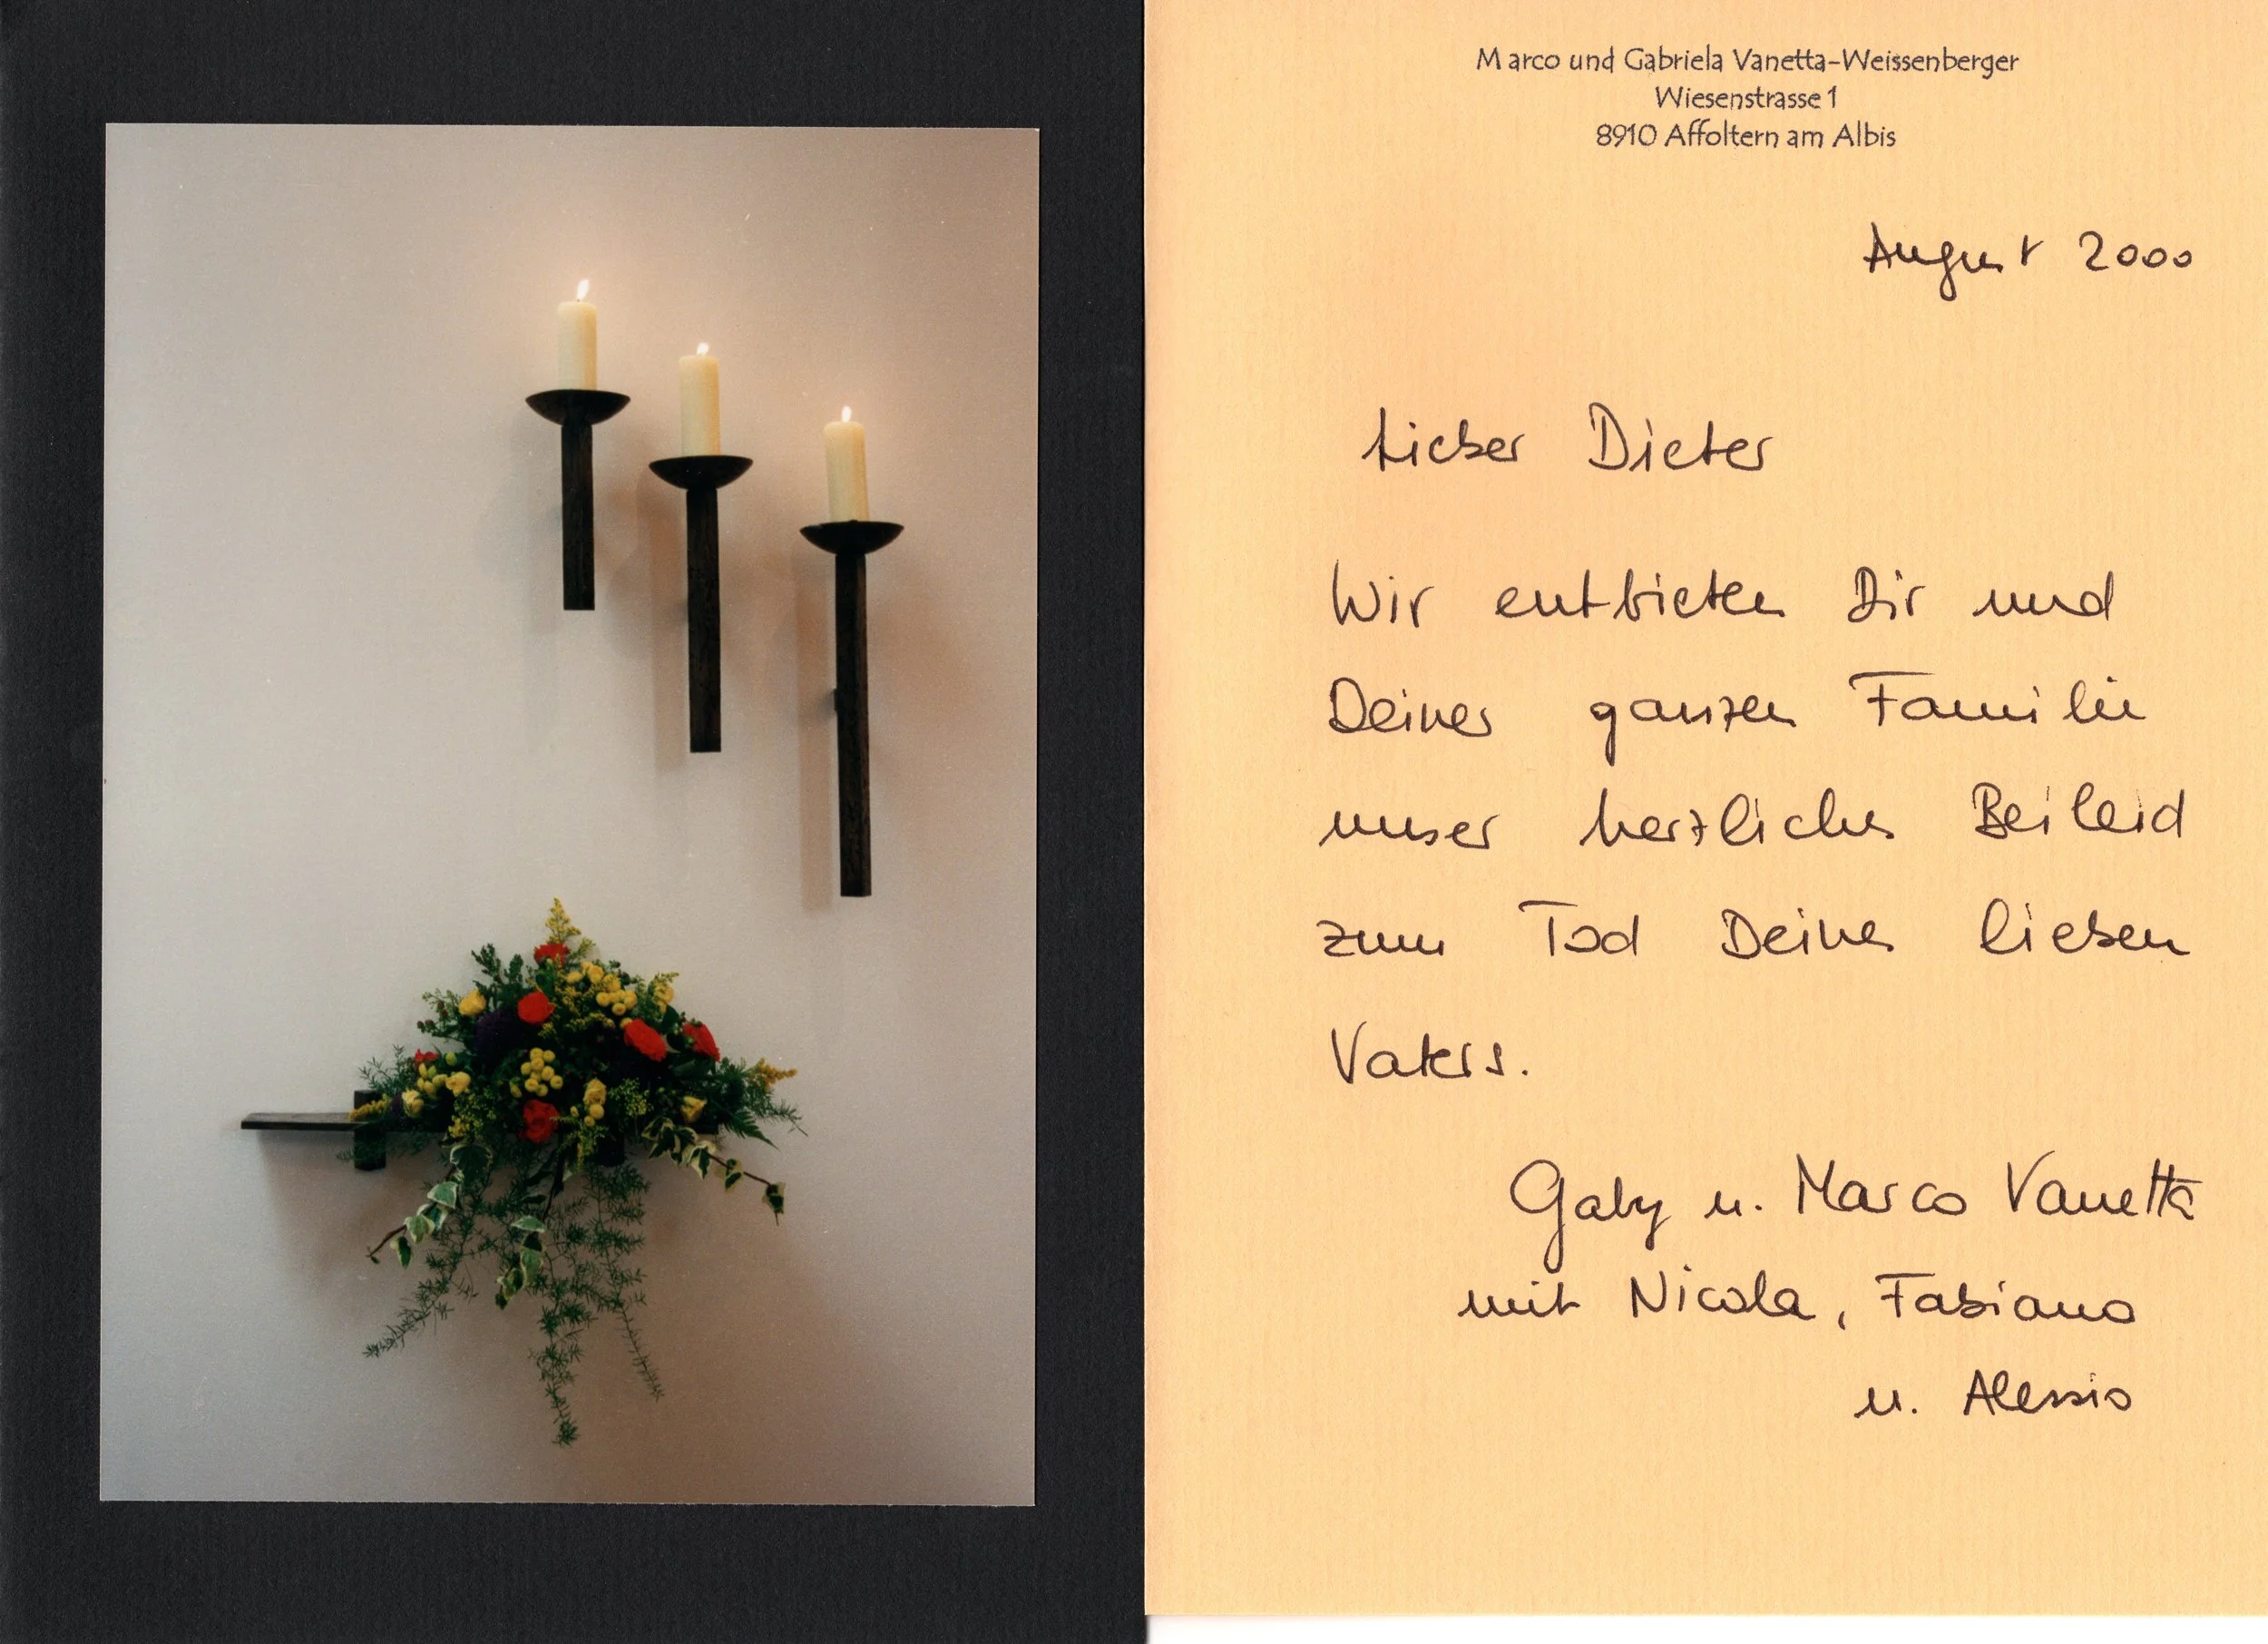 Marco und Gabriela Vanetta-Weissenberger
Wiesenstrasse 1
8910 Affoltern am Albis
August 2000
Lieber Dieter
Wir entbieten Dir und
Deiner ganzen Familie
unser herzliches Beileid
zum Tod Deines lieben
Vaters.
Gaby u. Marco Vanetta
mit Nicola, Fabiano
u. Alessio